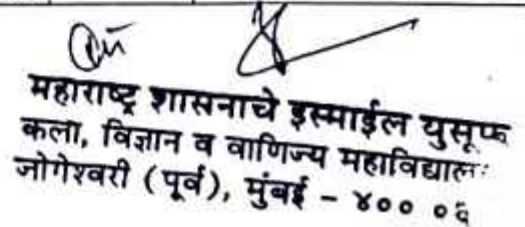 महाराष्ट्र शासनाचे इस्माईल युसूफ
कला, विज्ञान व वाणिज्य
जोगेश्वरी (पूर्व), मुंबई - ४०० ०६